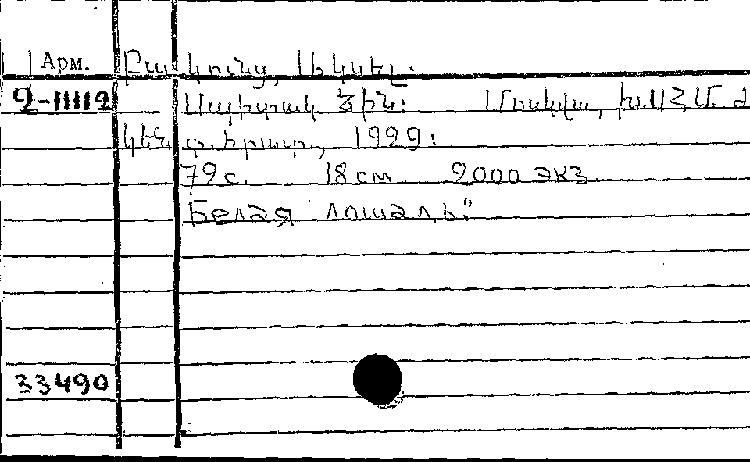 Арм.
Բակունց, Ակսել.
2-11112
Սպիտակ Ձին: Մոսկվա, ԽՍՀՄ
կենտ. հրատ., 1929:
79 с. 18 см 2000 экз.
"Белая лошадь"
33490